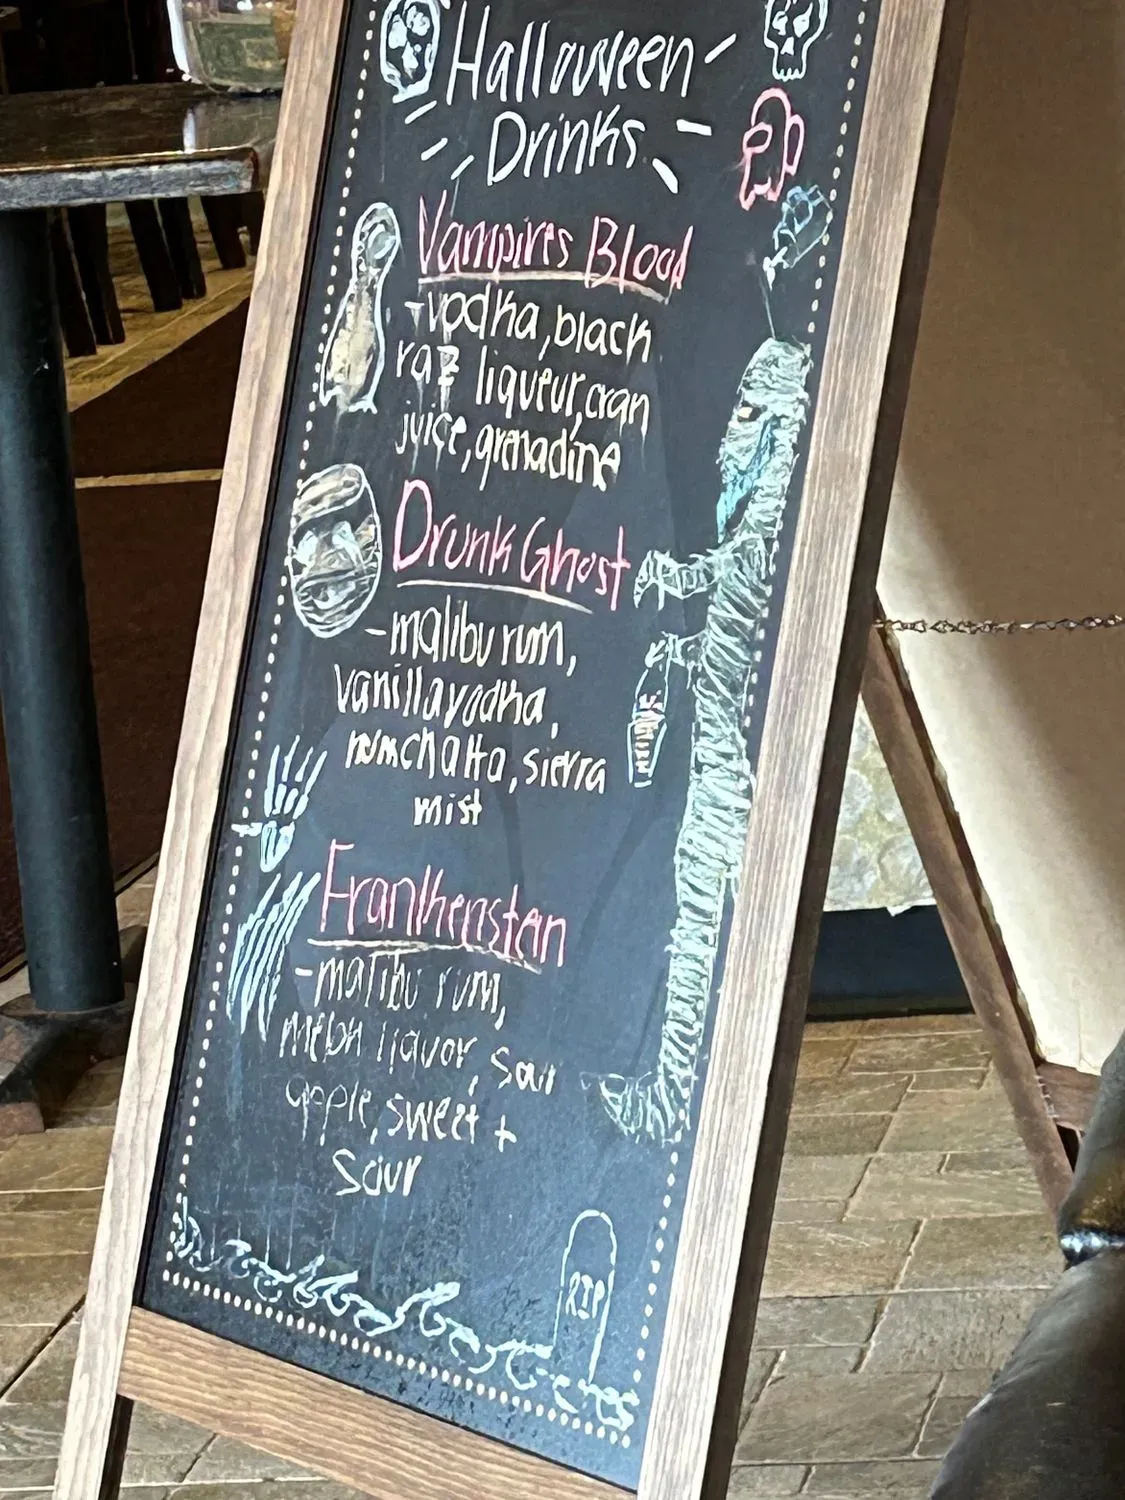 Halloween
Drinks
Vampires Blood
-vodka, black
raz liqueur, cran
juice, grenadine
Drunk Ghost
-malibu rum,
vanilla vodka,
rumchatta, sierra
mist
Frankhenstein
-malibu rum,
melon liquor, sour
apple, sweet +
sour
RIP